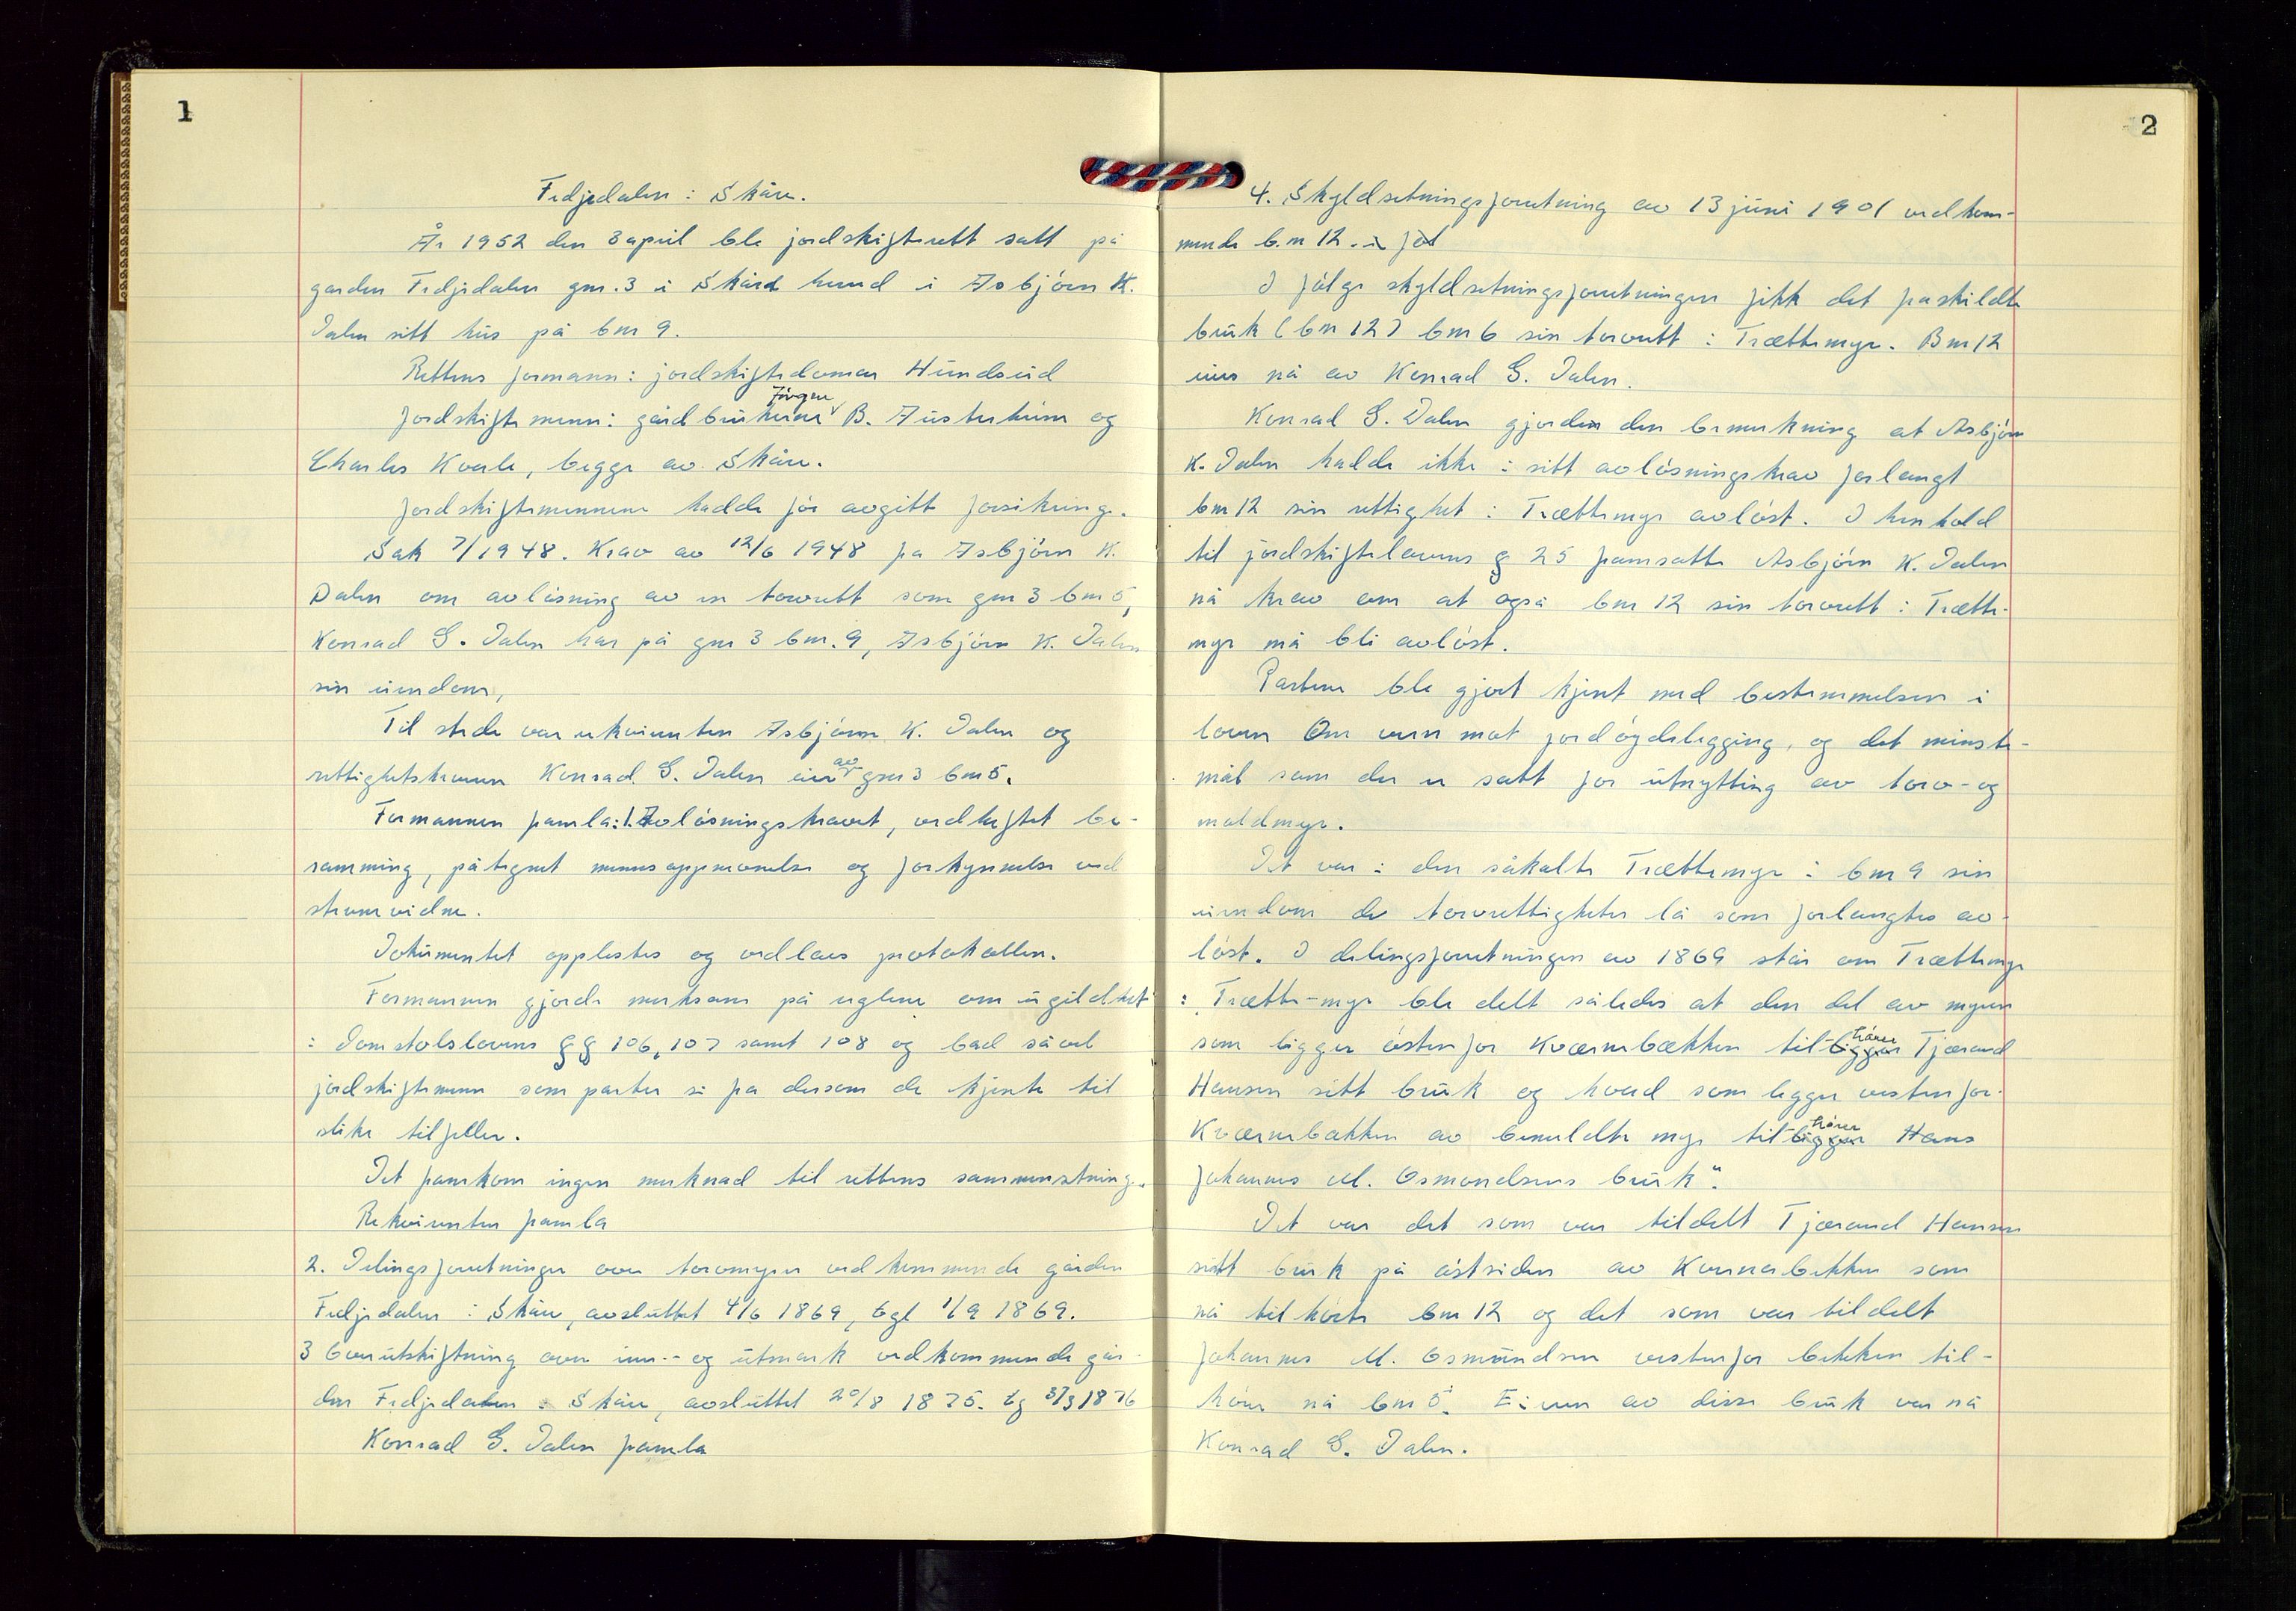 1
Fedjedalen i Skåre.
År 1952 den 3 april ble jordskifterett satt på
garden Fedjedalen gnr. 3 i Skåre herred i Asbjørn K.
Dalen sitt hus på bnr 9.
Rettens formann: jordskiftedomar Hundseid
Jørgen
Jordskiftemenn: gårdbrukerne B. Austerheim og
Charles Kvale, begge av Skåre.
Jordskiftemennene hadde før avgitt forsikring.
Sak 7/1948. Krav av 12/6 1948 fra Asbjørn K.
Dalen om avløsning av en torvrett som gnr 3 bnr 5,
Konrad G. Dalen har på gnr 3 bnr. 9, Asbjørn K. Dalen
sin eiendom,
Til stede var rekvirenten Asbjørn K. Dalen og
rettighetshaveren Konrad G. Dalen eier av gnr 3 bnr 5.
Formannen framla: 1. Avløsningskravet, vedheftet be-
ramming, påtegnet mennsoppnevnelse og forkynnelse ved
stevnevidne.
Dokumentet opplestes og vedlaes protokollen.
Formannen gjorde merksam på reglene om ugildhet
i Domstolslovens §§ 106, 107 samt 108 og bad såvel
jordskiftemenn som parter si fra dersom de kjente til
slike tilfeller.
Det framkom ingen merknad til rettens sammensetning.
Rekvirenten framla
2. Delingsforretninger over torvmyrer vedkommende gården
Fedjedalen i Skåre, avsluttet 4/6 1869, tgl 1/9 1869.
3 Overutskiftning over inn- og utmark vedkommende går-
den Fedjedalen i Skåre, avsluttet 20/8 1875. tg 3/3 1876
Konrad G. Dalen framla
2
4. Skyldsetningsforretning av 13 juni 1901 vedkom-
mende b.nr 12. i føl
I følge skyldsetningsforretningen fikk det fraskildte
bruk (bnr 12) bnr 6 sin torvrett i Trættemyr. Bnr 12
eies nå av Konrad G. Dalen.
Konrad G. Dalen gjorden den bemerkning at Asbjørn
K. Dalen hadde ikke i sitt avløsningskrav forlangt
bnr 12 sin rettighet i Trættemyr avløst. I henhold
til jordskiftelovens § 25 framsatte Asbjørn K. Dalen
nå krav om at også bnr 12 sin torvrett i Trætte-
myr må bli avløst.
Partene ble gjort kjent med bestemmelsen i
loven Om vern mot jordøydelegging, og det minste-
mål som der er satt for utnytting av torv- og
moldmyr.
Det var i den såkalte Trættemyr i bnr 9 sin
eiendom de torvrettigheter lå som forlangtes av-
løst. I delingsforretningen av 1869 står om Trættemyr
: „Trætte-myr ble delt således at den del av myren
hører
som ligger østenfor Kværnebækken til-ligger Tjærand
Hansen sitt bruk og hvad som ligger vestenfor
Kværnebækken av bemeldte myr til-ligger Hans
hører
Johannes M. Osmondsens bruk".
Det var det som var tildelt Tjærand Hansen
sitt bruk på østsiden av Kvernabekken som
nå tilhørte bnr 12 og det som var tildelt
Johannes M. Osmundsen vestenfor bekken til-
hører nå bnr 5. Eieren av disse bruk var nå
Konrad G. Dalen.